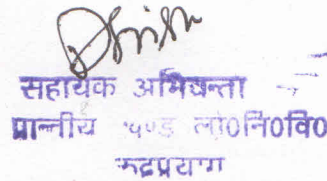 सहायक अभियन्ता
प्रान्तीय खण्ड लो0नि0वि0
रूद्रप्रयाग